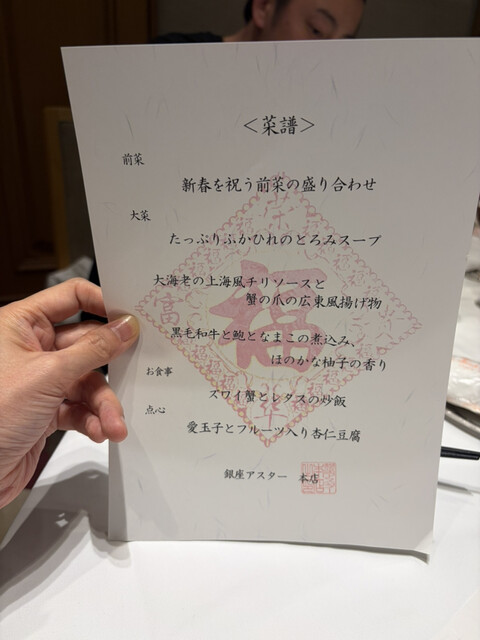 <菜譜>
前菜
新春を祝う前菜の盛り合わせ
大菜
たっぷりふかひれのとろみスープ
大海老の上海風チリソースと
蟹の爪の広東風揚げ物
黒毛和牛と鮑となまこの煮込み、
ほのかな柚子の香り
お食事
ズワイ蟹とレタスの炒飯
点心
愛玉子とフルーツ入り杏仁豆腐
銀座アスター 本店
福
富